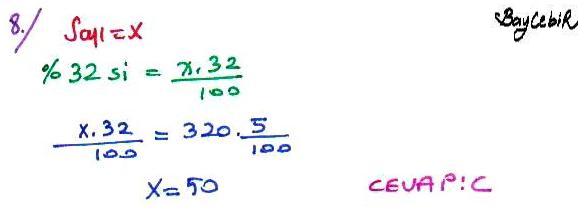 8./ Sayı = X
BayCebiR
% 32 si = x.32/100
x.32/100 = 320.5/100
X = 50
CEVAP: C